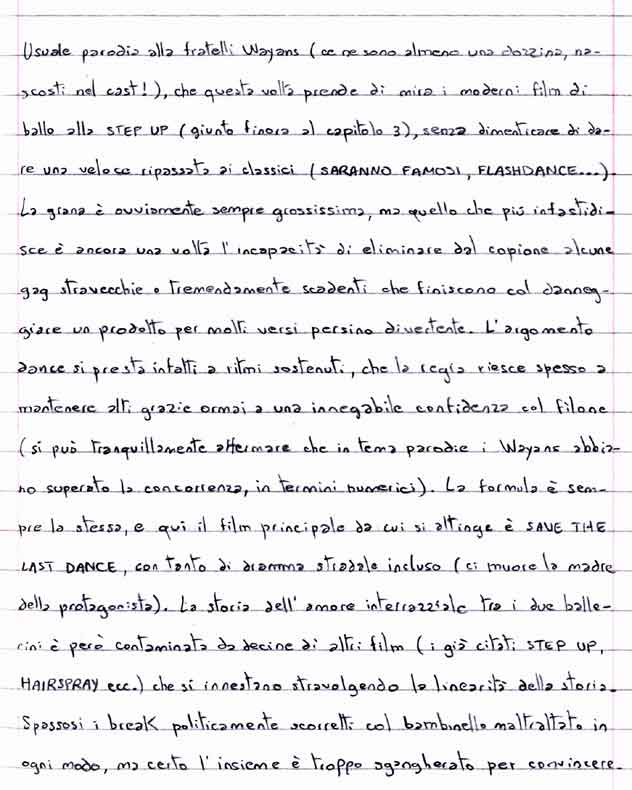 Usuale parodia alla fratelli Wayans (ce ne sono almeno una dozzina, na-
scosti nel cast!), che questa volta prende di mira i moderni film di
ballo alla STEP UP (giunto finora al capitolo 3), senza dimenticare di da-
re una veloce ripassata ai classici (SARANNO FAMOSI, FLASHDANCE...).
La grana è ovviamente sempre grossissima, ma quello che più infastidi-
sce è ancora una volta l'incapacità di eliminare dal copione alcune
gag stravecchie o tremendamente scadenti che finiscono col danneg-
giare un prodotto per molti versi persino divertente. L'argomento
dance si presta infatti a ritmi sostenuti, che la regia riesce spesso a
mantenere alti grazie ormai a una innegabile confidenza col filone
(si può tranquillamente affermare che in tema parodie i Wayans abbia-
no superato la concorrenza, in termini numerici). La formula è sem-
pre la stessa, e qui il film principale da cui si attinge è SAVE THE
LAST DANCE, con tanto di dramma stradale incluso (ci muore la madre
della protagonista). La storia dell'amore interrazziale tra i due balle-
rini è però contaminata da decine di altri film (i già citati STEP UP,
HAIRSPRAY ecc.) che si innestano stravolgendo la linearità della storia.
Spassosi i break politicamente scorretti col bambinello maltrattato in
ogni modo, ma certo l'insieme è troppo sgangherato per convincere.